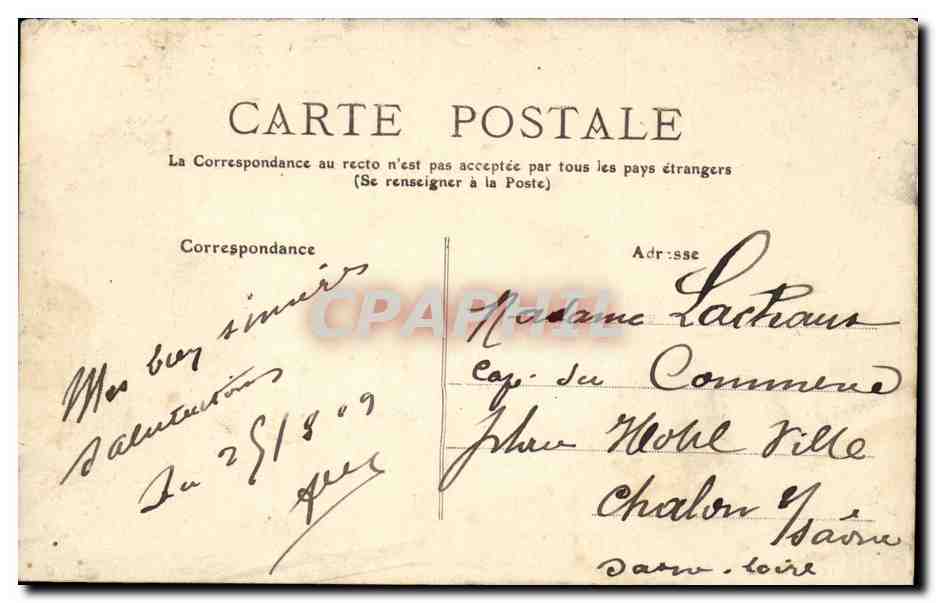 CARTE POSTALE
La Correspondance au recto n'est pas acceptée par tous les pays étrangers
(Se renseigner à la Poste)
Correspondance
Mes bien sincères
salutations
Du 25/3 09
Adresse
Madame
Caf. du Commerce
place Hotel Ville
Chalon s/Saône
Saone-Loire
CPAPHIL